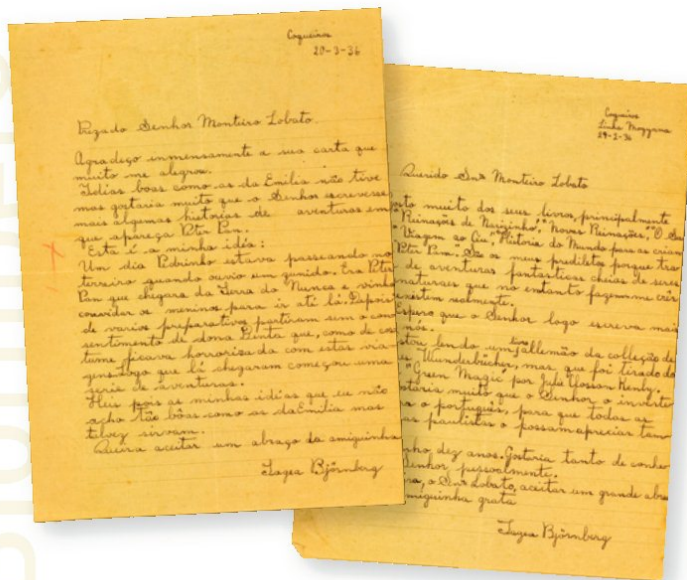 Coqueiros
20-3-36
Prezado Senhor Monteiro Lobato.
Agradeço immensamente a sua carta que
muito me alegrou.
Idéias boas como as da Emilia não tive
mas gostaria muito que o Senhor escrevesse
mais algumas historias de aventuras em
que apareça Peter Pan.
Esta é a minha idéia:
Um dia Pedrinho estava passeando no
terreiro quando ouvio um zunido. Era Peter
Pan que chegara da Terra do Nunca e vinha
convidar os meninos para ir até lá. Depois
de varios preparativos partiram sem o con
sentimento de dona Benta que, como de cos
tume ficava horrorizada com estas via
gens. Logo que lá chegaram começou uma
serie de aventuras.
Heis pois as minhas idéias que eu não
acho tão bôas como as da Emilia mas
talvez sirvam.
Queira aceitar um abraço da amiguinha
Tagea Björnberg
Coqueiros
Linha Mogyana
29-2-36
Querido Snr Monteiro Lobato
osto muito dos seus livros, principalmente
"Reinações de Narizinho", "Novas Reinações", "O
"Viagem ao Céu", "Historia do Mundo para as crian
Peter Pan. São os meus prediletos porque tra
de aventuras fantasticas cheias de seres
naturaes que no entanto fazem-me crêr
existem realmente.
Espero que o Senhor logo escreva mais
nós.
stou lendo um livro allemão da collecção de
Wunderbücher, mas que foi tirado do
"Green Magic por Julie
staria muito que o Senhor o
a o português, para que todas as
as paulistas o possam apreciar tam
nho dez anos. Gostaria tanto de conhe
Senhor pessoalmente.
ra, o Snr Lobato, aceitar um grande abra
amiguinha grata
Tagea Björnberg